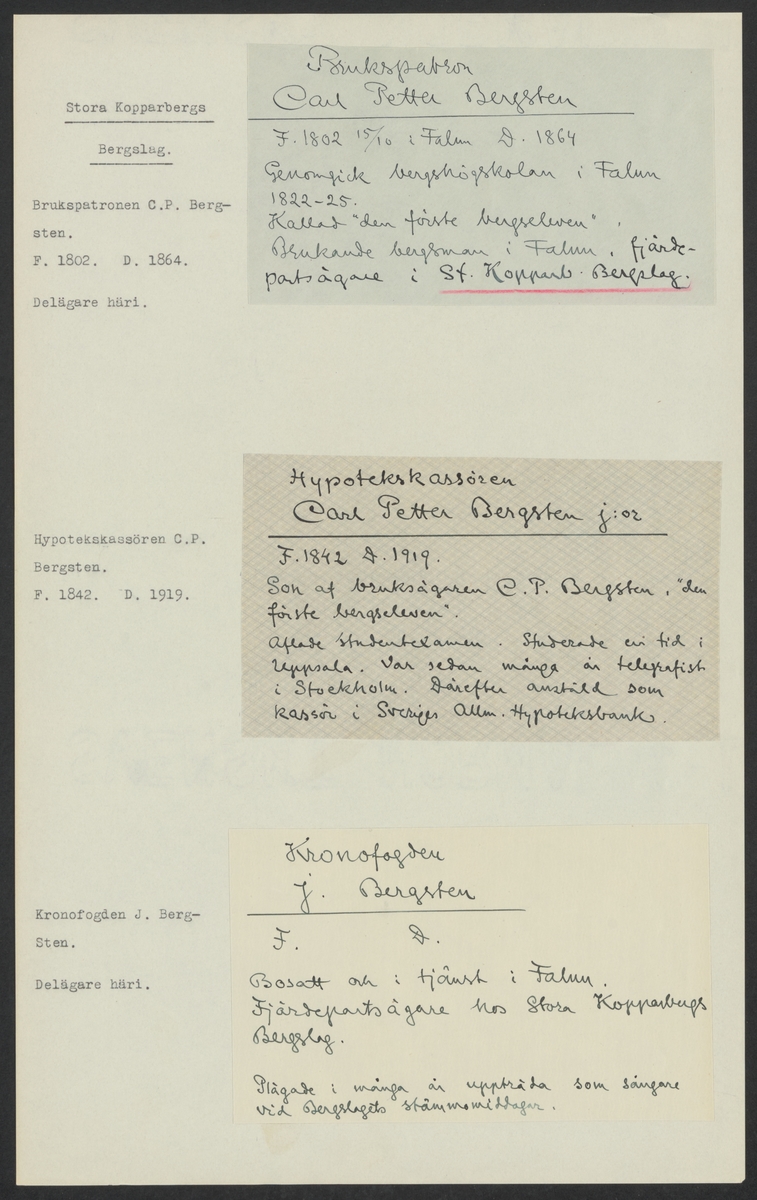 Stora Kopparbergs
Bergslag.
Brukspatronen C.P. Berg-
sten.
F. 1802. D. 1864.
Delägare häri.
Brukspatron
Carl Petter Bergsten
F. 1802 15/10 i Falun D. 1864
Genomgick bergshögskolan i Falun
1822-25.
Kallad "den förste bergseleven".
Brukande bergsman i Falun, fjärde-
partsägare i St. Kopparb. Bergslag.
Hypotekskassören C.P.
Bergsten.
F. 1842. D. 1919.
Hypotekskassören
Carl Petter Bergsten j:or
F. 1842 D. 1919.
Son af bruksägaren C.P. Bergsten, "den
förste bergseleven".
Aflade studentexamen. Studerade en tid i
Uppsala. Var sedan många år telegrafist
i Stockholm. Därefter anställd som
kassör i Sveriges Allm. Hypoteksbank.
Kronofogden J. Berg-
Sten.
Delägare häri.
Kronofogden
J. Bergsten
F. D.
Bosatt och i tjänst i Falun.
Fjärdepartsägare hos Stora Kopparbergs
Bergslag.
Plägade i många år uppträda som sångare
vid Bergslagets stämmomiddagar.